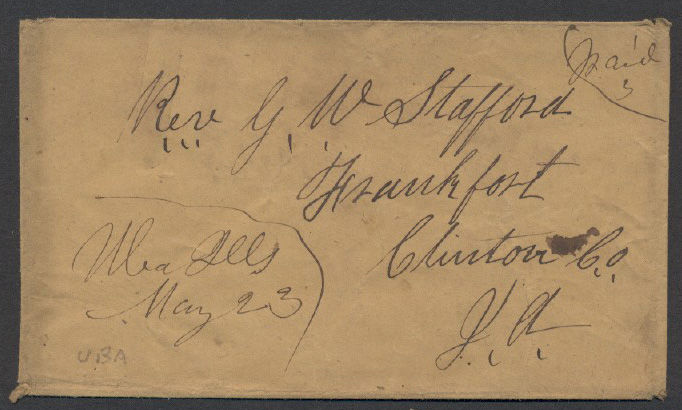 Paid
3
Rev G W Stafford
Frankfort
Clinton Co
I A
Uba Ills
May 23
UBA